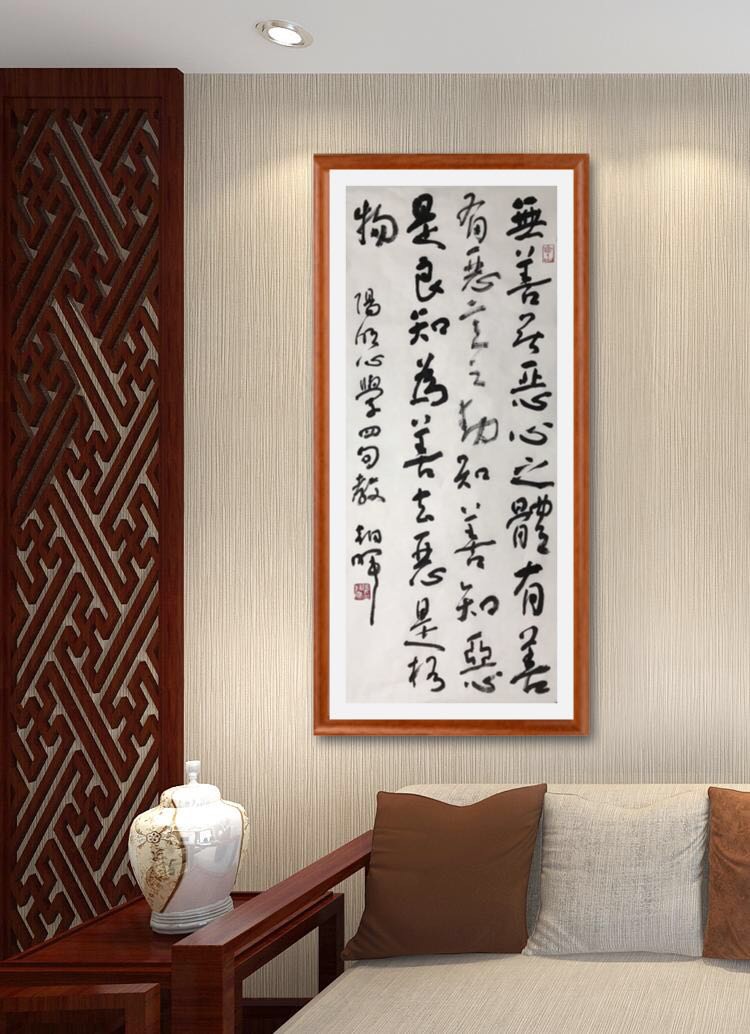 無善无惡心之體有善
有惡意之動知善知惡
是良知為善去惡是格
物
陽明心學四句教 朝暉